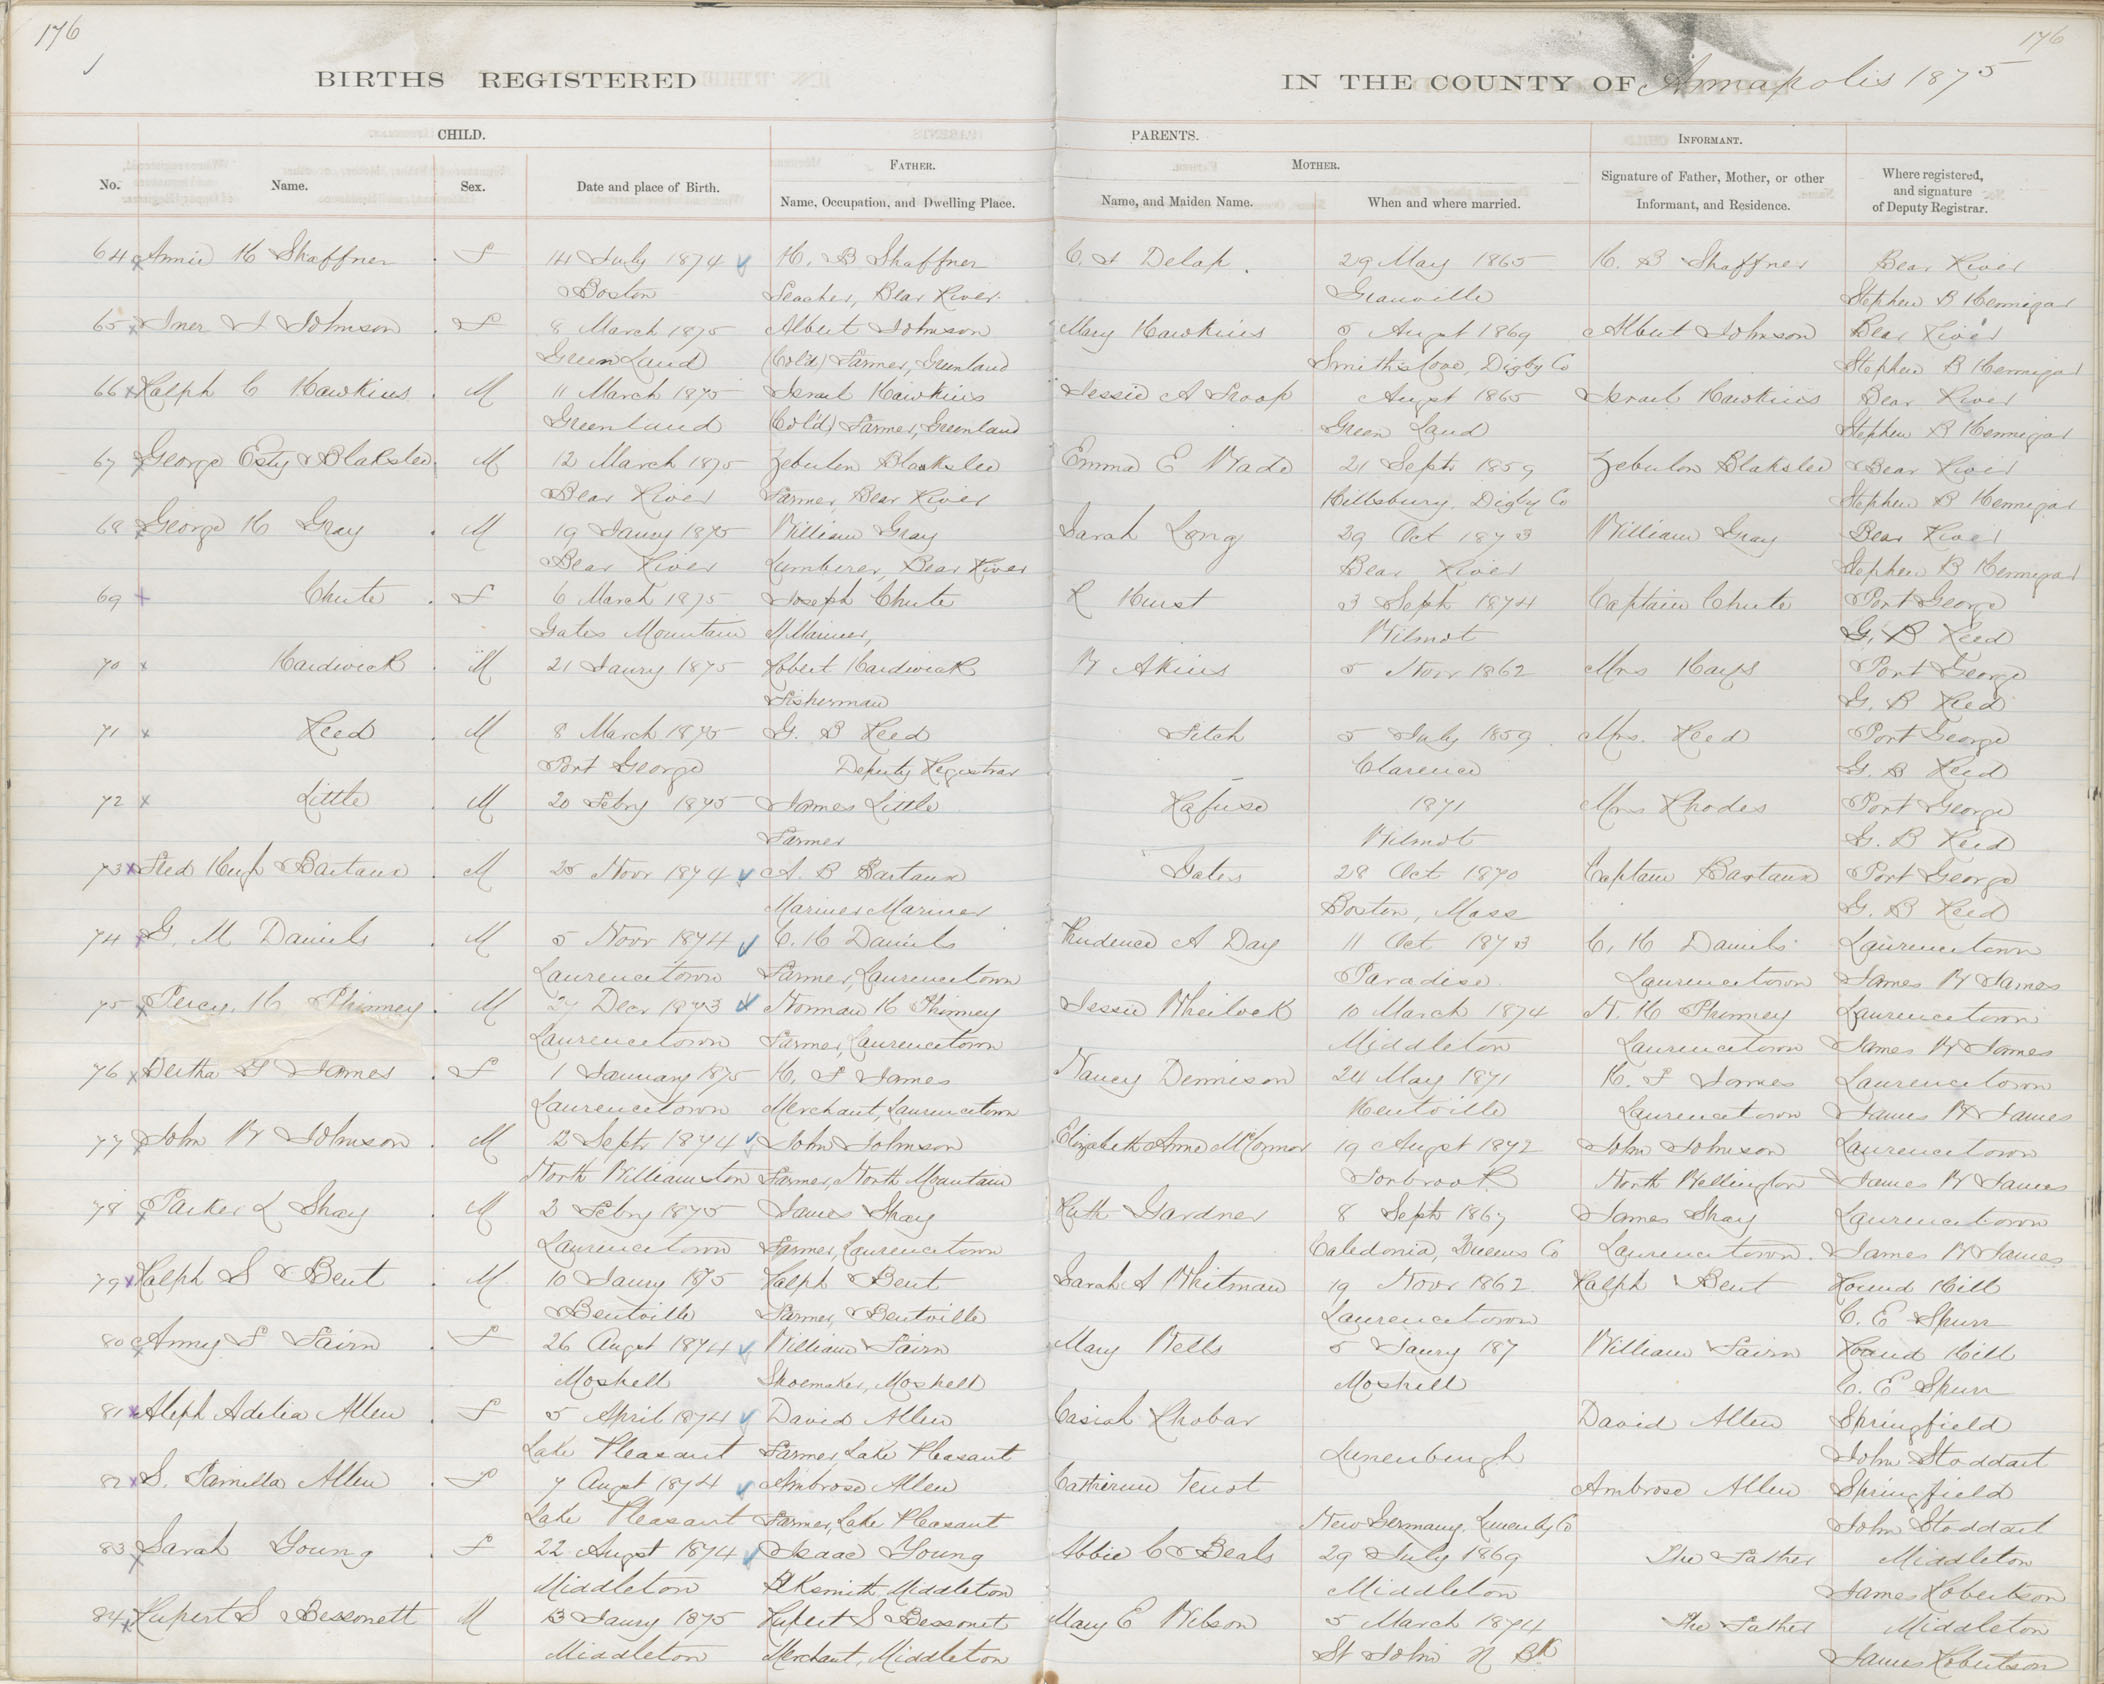 176
176
BIRTHS REGISTERED IN THE COUNTY OF Annapolis 1875
CHILD. PARENTS. INFORMANT.
FATHER. MOTHER.
No. Name. Sex. Date and place of Birth. Name, Occupation, and Dwelling Place. Name, and Maiden Name. When and where married. Signature of Father, Mother, or other Informant, and Residence. Where registered, and signature of Deputy Registrar.
64 Annie H Shaffner F 14 July 1874 H. B Shaffner C. Delap 29 May 1865 H. B Shaffner Bear River
Boston Teacher, Bear River Granville Stephen B Hennigar
65 Inez J Johnson F 8 March 1875 Albert Johnson Mary Hawkins 5 Augst 1869 Albert Johnson Bear River
Green Land (Cold) Farmer, Greenland Smiths Cove, Digby Co Stephen B Hennigar
66 Ralph C Hawkins M 11 March 1875 Israel Hawkins Jessie A Troop Augst 1865 Israel Hawkins Bear River
Greenland (Cold) Farmer, Greenland Green Land Stephen B Hennigar
67 George Esty Blakslee M 12 March 1875 Zebulon Blakslee Emma E Wade 21 Sept 1859 Zebulon Blakslee Bear River
Bear River Farmer, Bear River Hillsbury, Digby Co Stephen B Hennigar
68 George H Gray M 19 Jany 1875 William Gray Sarah Long 29 Oct 1873 William Gray Bear River
Bear River Lumberer, Bear River Bear River Stephen B Hennigar
69 Chute F 6 March 1875 Joseph Chute R Hurst 3 Sept 1874 Captain Chute Port George
Gates Mountain Mariner, Wilmot G. B Reed
70 Hardwick M 21 Janry 1875 Robert Hardwick W Akins 5 Novr 1862 Mrs Hays Port George
Fisherman G. B Reed
71 Reed M 8 March 1875 G. B Reed Fitch 5 July 1859 Mrs. Reed Port George
Port George Deputy Registrar Clarence G. B Reed
72 Little M 20 Febry 1875 James Little Rafuse 1871 Mrs Rhodes Port George
Farmer Wilmot G. B Reed
73 Fred Hugh Bartaux M 25 Novr 1874 A. B Bartaux Gates 28 Oct 1870 Captain Bartaux Port George
Mariner Mariner Boston, Mass G. B Reed
74 G. M Daniels M 5 Novr 1874 C. H Daniels Prudence A Day 11 Oct 1873 C. H Daniels Laurencetown
Laurencetown Farmer, Laurencetown Paradise Laurencetown James W James
75 Percy. H. Phinney M 27 Decr 1873 Norman H Phinney Jessie Wheelock 10 March 1874 N. H Phinney Laurencetown
Laurencetown Farmer, Laurencetown Middleton Laurencetown James W James
76 Bertha G James F 1 January 1875 H. F James Nancy Dennison 24 May 1871 H. F James Laurencetown
Laurencetown Merchant, Laurencetown Kentville Laurencetown James W James
77 John W Johnson M 12 Septr 1874 John Johnson Elizabeth Anne McConnor 19 Augst 1872 John Johnson Laurencetown
North Williamston Farmer, North Mountain Torbrook North Wellington James W James
78 Parker L Shay M 2 Febry 1875 James Shay Ruth Gardner 8 Sept 1867 James Shay Laurencetown
Laurencetown Farmer, Laurencetown Caledonia, Queens Co Laurencetown James W James
79 Ralph S Bent M 10 Janry 1875 Ralph Bent Sarah A Whitman 19 Novr 1862 Ralph Bent Round Hill
Bentville Farmer, Bentville Laurencetown C. E Spurr
80 Anny F Fairn F 26 Augst 1874 William Fairn Mary Wells 5 Janry 187 William Fairn Round Hill
Moshell Shoemaker, Moshell Moshell C. E Spurr
81 Aleph Adelia Allen F 5 April 1874 David Allen Casiah Rhobar David Allen Springfield
Lake Pleasant Farmer, Lake Pleasant Lunenburgh John Stoddart
82 S. Pamilla Allen F 7 Augst 1874 Ambrose Allen Catherine Ambrose Allen Springfield
Lake Pleasant Farmer, Lake Pleasant New Germany, Lunenby Co John Stoddart
83 Sarah Young F 22 Augst 1874 Isaac Young Abbie C Beals 29 July 1869 The Father Middleton
Middleton Blksmith, Middleton Middleton James Robertson
84 Rupert S Bessonett M 13 Janry 1875 Rupert S Bessonet Mary E Wilson 5 March 1874 The Father Middleton
Middleton Merchant, Middleton St John N Bk James Robertson